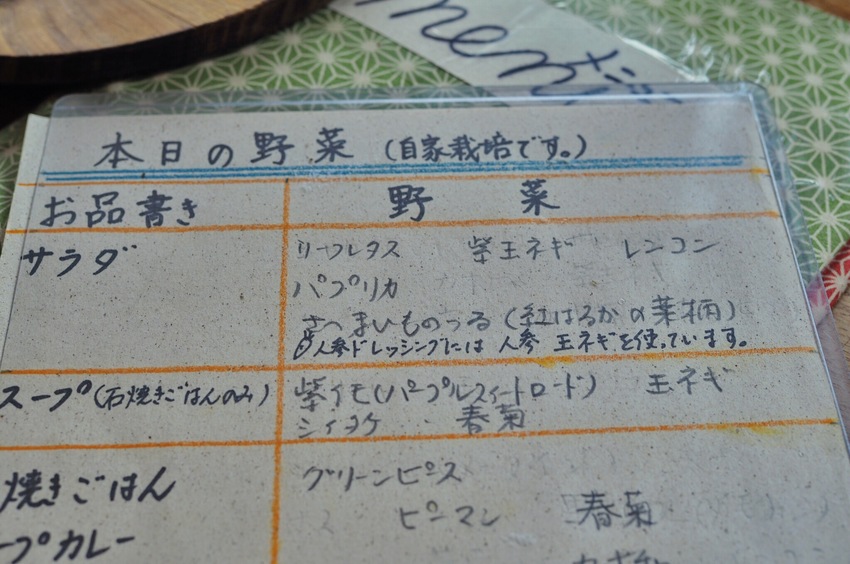 menu
本日の野菜 (自家栽培です。)
お品書き 野菜
サラダ リーフレタス 紫玉ネギ レンコン
パプリカ
さつまいものつる (紅はるかの葉柄)
人参ドレッシングには 人参 玉ネギを使っています。
スープ(石焼きごはんのみ) 紫イモ(パープルスィートロード) 玉ネギ
シイタケ 春菊
焼きごはん グリーンピース
ピーマン 春菊
プカレー